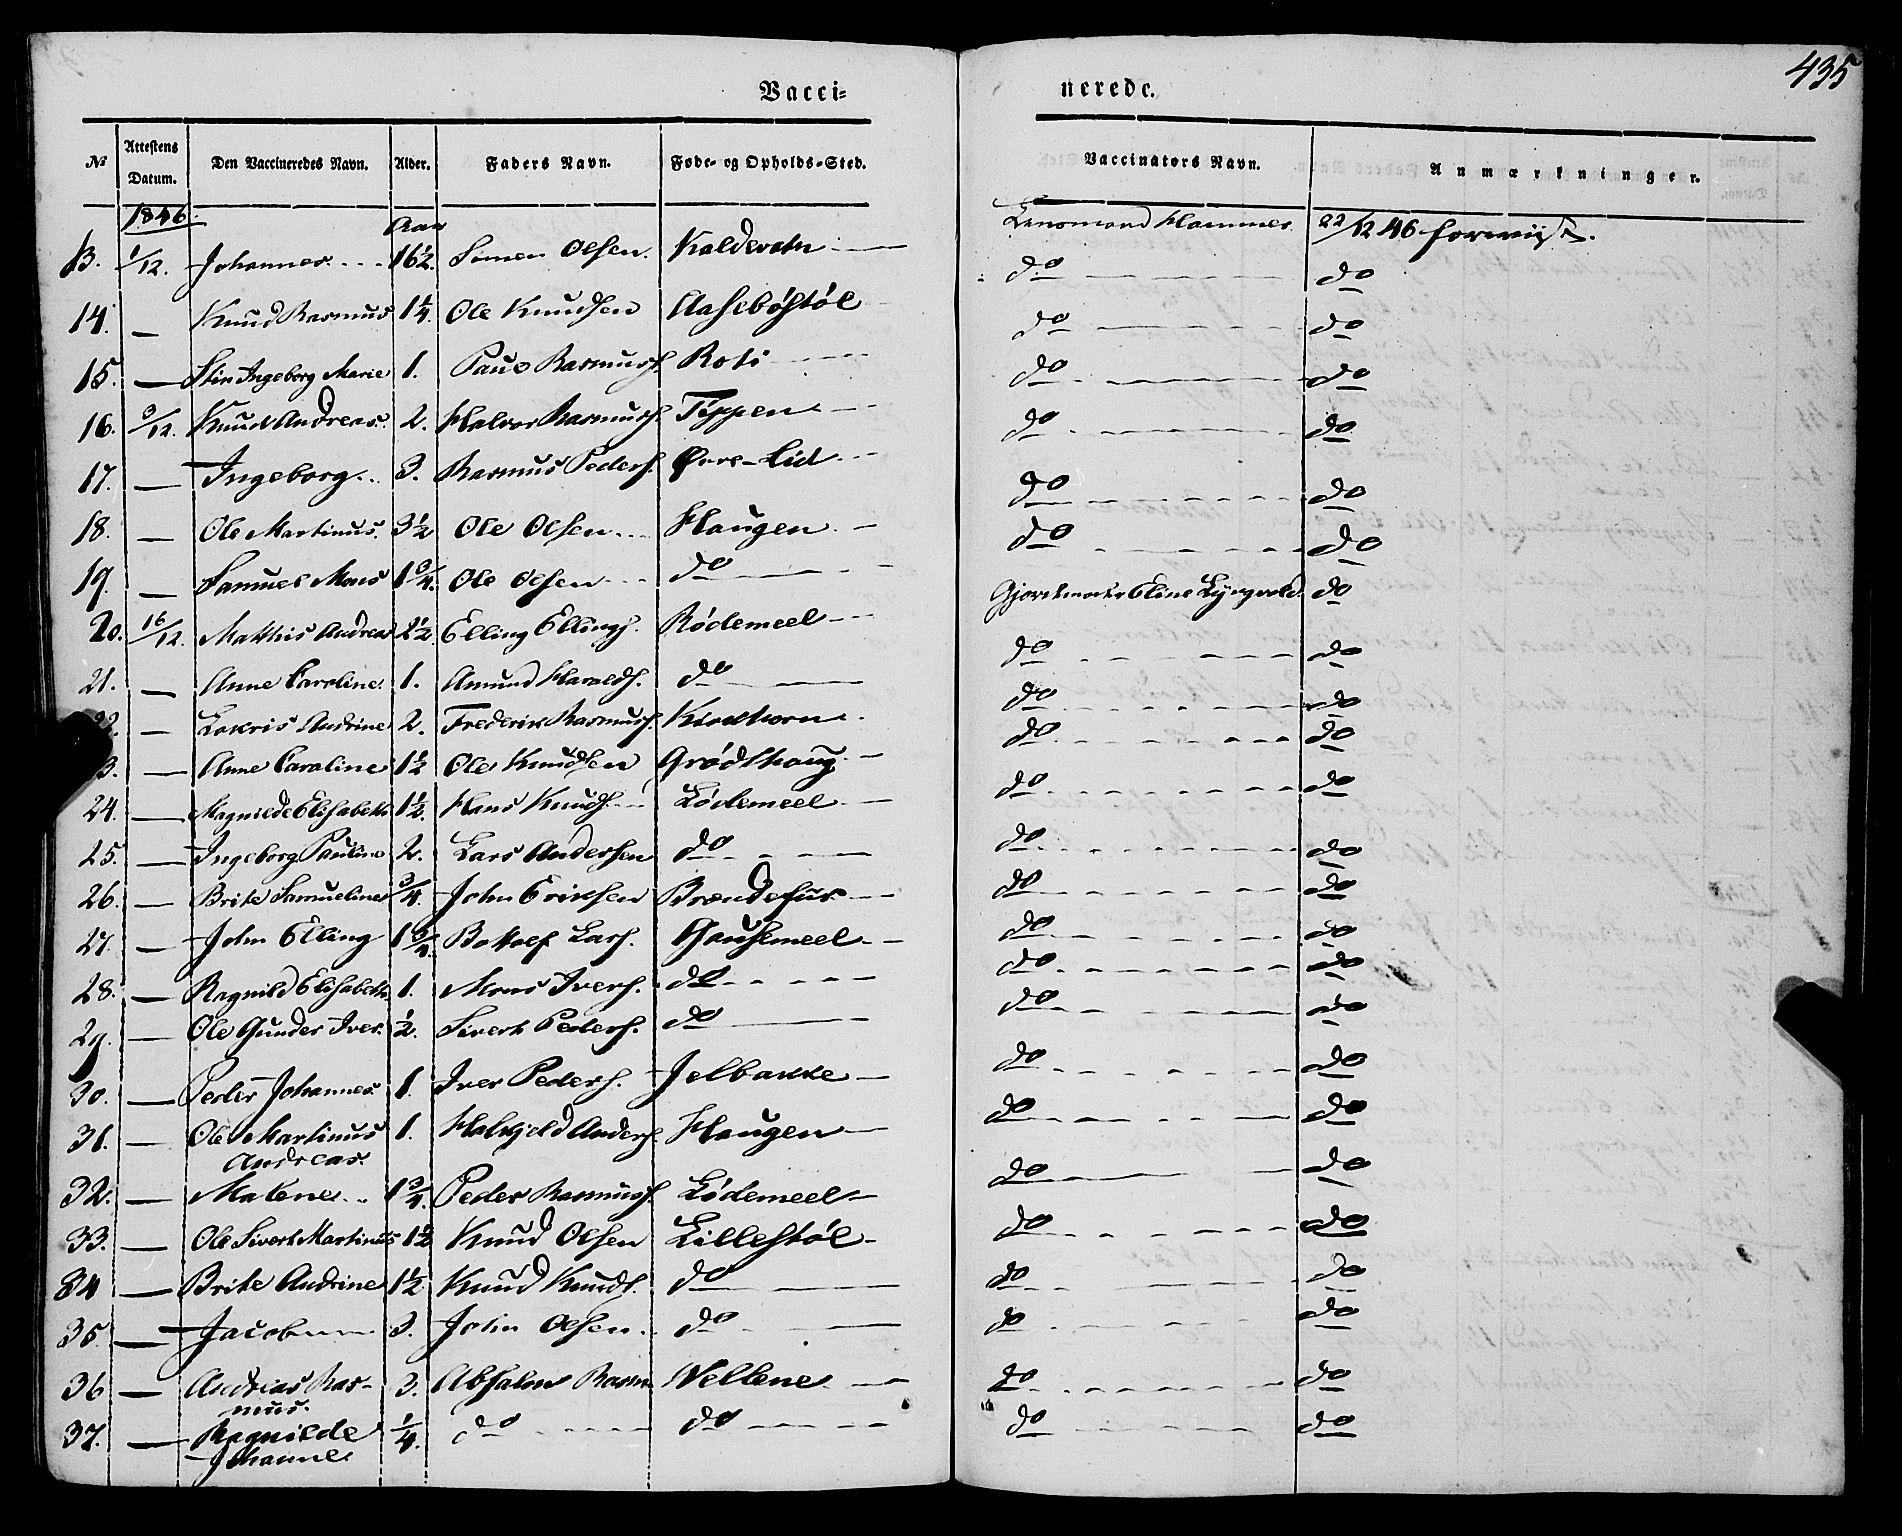 435
Vacci- nerede.
No Attestens Datum. Den Vaccineredes Navn. Alder. Faders Navn. Føde- og Opholds-Sted. Vaccinators Navn. Anmærkninger.
1846. Aar
13. 1/12. Johannes 16½. Simen Olsen. Kaldevatn Lensmand Hammer 22/12 46 forevist.
14. — Knud Rasmus 1¼. Ole Knudsen Aasebøstøl do do
15. — Stin Ingeborg Marie 1. Paul Rasmuss. Rots do do
16. 3/12. Knud Andreas. 2. Halvor Rasmuss. Tippen do do
17. — Ingeborg 3. Rasmus Peders. Øvre-Lid do do
18. — Ole Martinus. 3½ Ole Olsen Haugen do do
19. — Samuel Mons 1¾. Ole Olsen do do do
20. 16/12. Mathis Andreas 2½ Elling Ellings. Rødemeel Gjordemoder Eline Lyngvold do
21. — Anne Caroline. 1. Amund Haralds. do do do
22. — Andrine 2. Frederik Rasmuss. do do
23. — Anne Caroline 1½ Ole Knudsen Grødthaug do do
24. — Magnilde Elisabeth 1½. Hans Knuds. Lødemeel do do
25. — Ingeborg Pauline 2. Lars Andersen do do do
26. — Brite Samueline ¾. John Eriksen do do
27. — John Elling 1¾. Bottolf Lars. Gausemeel do do
28. — Ragnild Elisabeth 1. Mons Ivers. do do do
29. — Ole Gunder Iver. ½. Sivert Peders. do do do
30. — Peder Johannes 1. Iver Peders. Jelbakke do do
31. — Ole Martinus 1. Halkjeld Anders. Haugen do do
Andreas.
32. — Malene 1¾. Peder Rasmuss. Lødemeel do do
33. — Ole Sivert Martinus 1½ Knud Olsen Lillestøl do do
34 — Brite Andrine 1½ Knud Knuds. do do do
35. — Jacob 3. John Olsen do do do
36 — Andreas Ras- 3. Absalon Rasm. Vellene do do
mus.
37. — Magnilde ¼. do do do do
Johanne